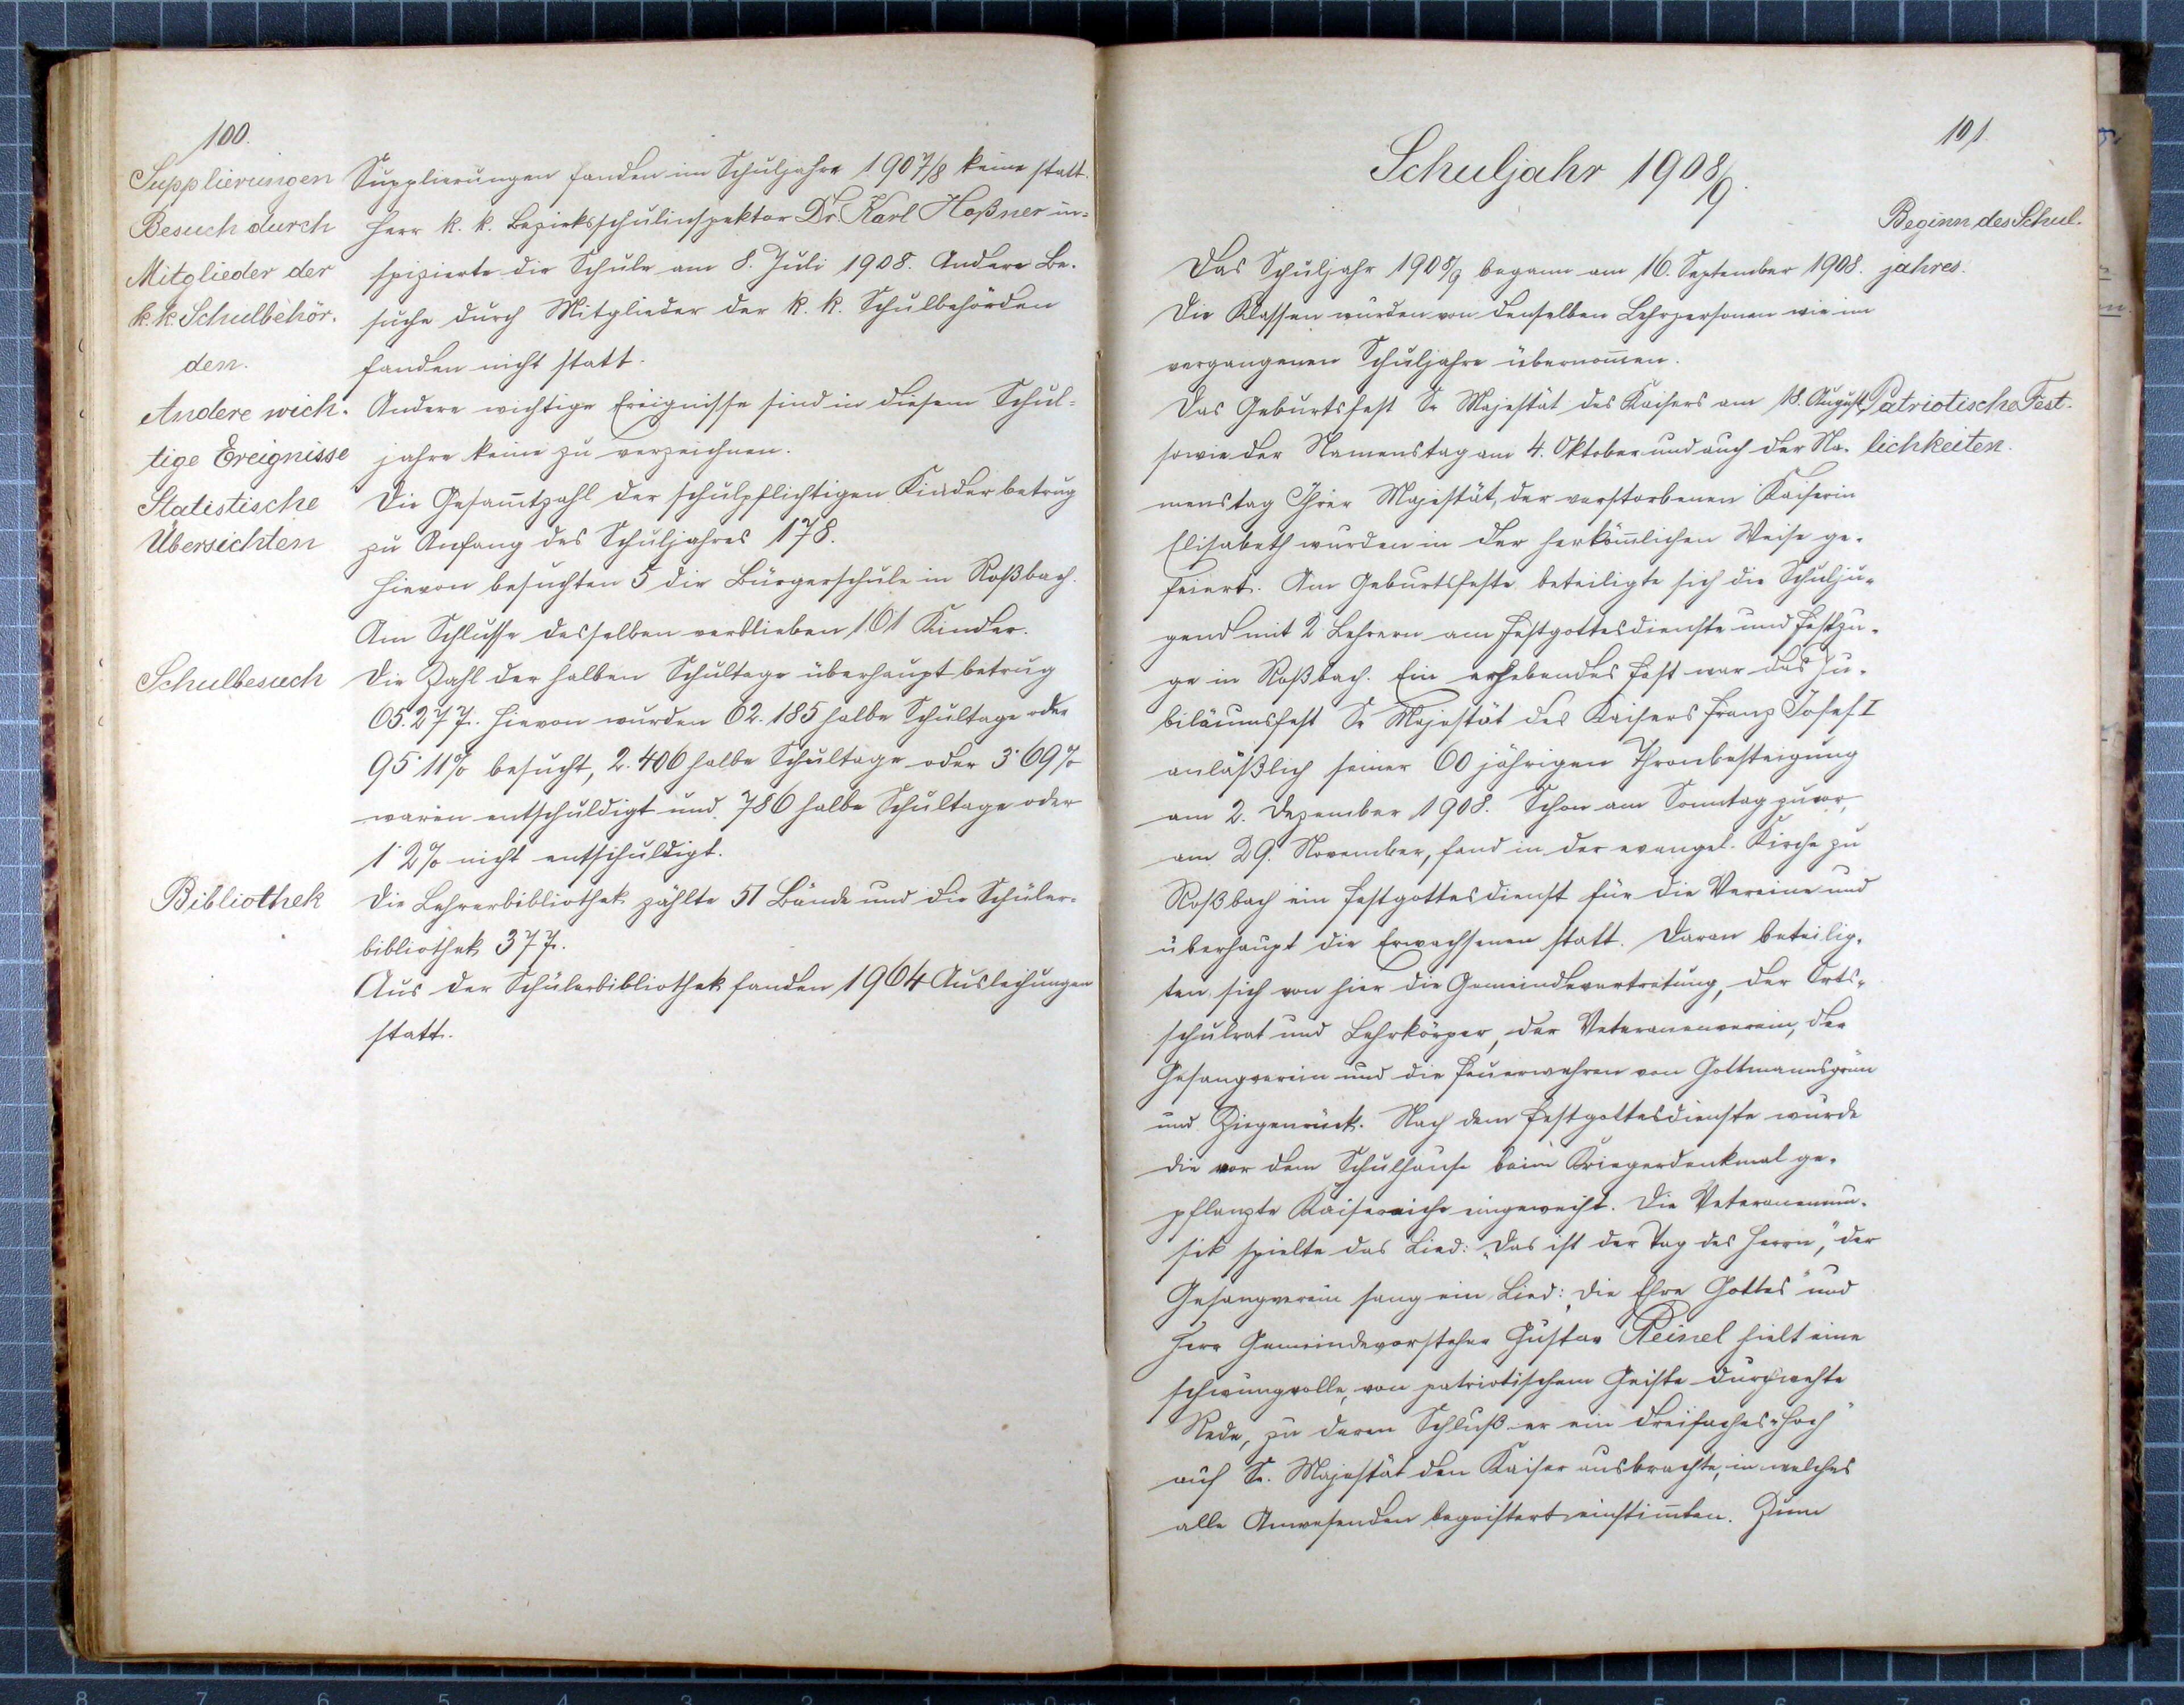 100.
Supplierungen
Supplierungen fanden im Schuljahre 1907/8 keine statt.
Besuch durch
Mitglieder der
k. k. Schulbehör-
den.
Herr k. k. Bezirksschulinspektor Dr. Karl Hoßner in-
spizierte die Schule am 8. Juli 1908. Andere Be-
suche durch Mitglieder der k. k. Schulbehörden
fanden nicht statt.
Andere wich-
tige Ereignisse
Andere wichtige Ereignisse sind in diesem Schul-
jahre keine zu verzeichnen.
Statistische
Übersichten
Die Gesam̅tzahl der schulpflichtigen Kinder betrug
zu Anfang des Schuljahres 178.
Hievon besuchten 5 die Bürgerschule in Roßbach.
Am Schlusse desselben verblieben 161 Kinder.
Schulbesuch
Die Zahl der halben Schultage überhaupt betrug
65.277. Hievon wurden 62.185 halbe Schultage oder
95·11% besucht, 2.406 halbe Schultage oder 3·69%
waren entschuldigt und 786 halbe Schultage oder
1·2% nicht entschuldigt.
Bibliothek
Die Lehrerbibliothek zählte 51 Bände und die Schüler-
bibliothek 377.
Aus der Schülerbibliothek fanden 1964 Ausleihungen
statt.
101.
Schuljahr 1908/9.
Beginn des Schul-
jahres.
Das Schuljahr 1908/9 begann am 16. September 1908.
Die Klassen wurden von denselben Lehrpersonen wie im
vergangenen Schuljahre übernom̅en.
Patriotische Fest-
lichkeiten.
Das Geburtsfest Sr Majestät des Kaisers am 18. August,
sowie der Namenstag am 4. Oktober und auch der Na-
menstag Ihrer Majestät, der verstorbenen Kaiserin
Elisabeth wurden in der herköm̅lichen Weise ge-
feiert. Am Geburtsfeste beteiligte sich die Schulju-
gend mit 2 Lehrern am Festgottesdienste und Festzu-
ge in Roßbach. Ein erhebendes Fest war das Ju-
biläumsfest Sr Majestät des Kaisers Franz Josef I
anläßlich seiner 60 jährigen Thronbesteigung
am 2. Dezember 1908. Schon am Sonntag zuvor,
am 29. November, fand in der evangel. Kirche zu
Roßbach ein Festgottesdienst für die Vereine und
überhaupt die Erwachsenen statt. Daran beteilig-
ten sich von hier die Gemeindevertretung, der Orts-
schulrat und Lehrkörper, der Veteranenverein, der
Gesangverein und die Feuerwehren von Gottmannsgrün
und Ziegenrück. Nach dem Festgottesdienste wurde
die vor dem Schulhause beim Kriegerdenkmal ge-
pflanzte Kaisereiche eingeweiht. Die Veteranenmu-
sik spielte das Lied: „Das ist der Tag des Herrn", der
Gesangverein sang ein Lied: „Die Ehre Gottes" und
Herr Gemeindevorsteher Gustav Reinel hielt eine
schwungvolle, von patriotischem Geiste durchwehte
Rede, zu deren Schluß er ein dreifaches „Hoch"
auf Sr. Majestät den Kaiser ausbrachte, in welches
alle Anwesenden begeistert einstim̅ten. Zum